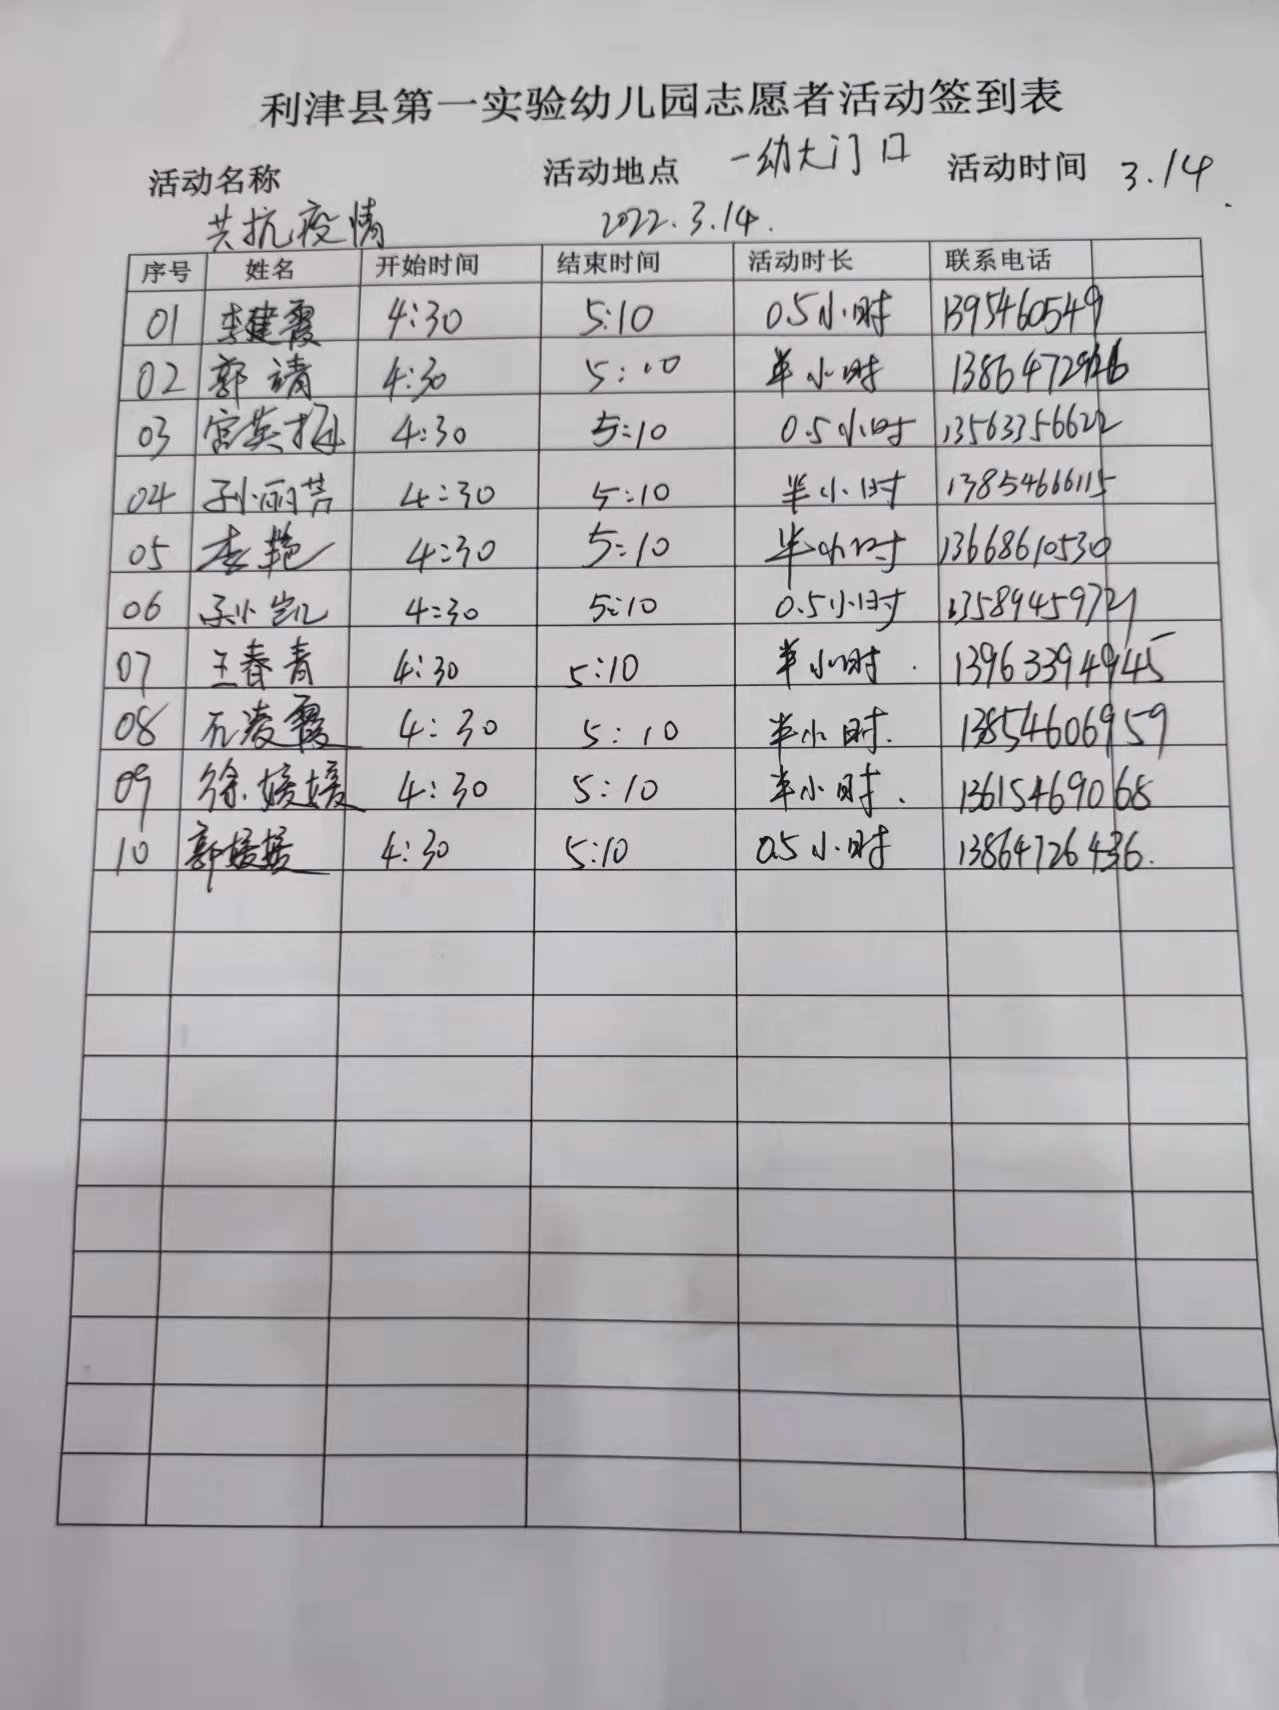 利津县第一实验幼儿园志愿者活动签到表
活动名称 活动地点 一幼大门口 活动时间 3.14
共抗疫情 2022.3.14.
序号 姓名 开始时间 结束时间 活动时长 联系电话
01 李建霞 4:30 5:10 0.5小时 1395460549
02 郭靖 4:30 5:10 半小时
03 宫英 4:30 5:10 0.5小时 13563356622
04 孙丽芸 4:30 5:10 半小时 13854666115
05 李艳 4:30 5:10 半小时 13668610530
06 孙凯 4:30 5:10 0.5小时 13589459721
07 王春青 4:30 5:10 半小时. 13963394945
08 石凌霞 4:30 5:10 半小时. 13854606959
09 徐媛媛 4:30 5:10 半小时. 13615469068
10 郭媛媛 4:30 5:10 0.5小时 13864726436.